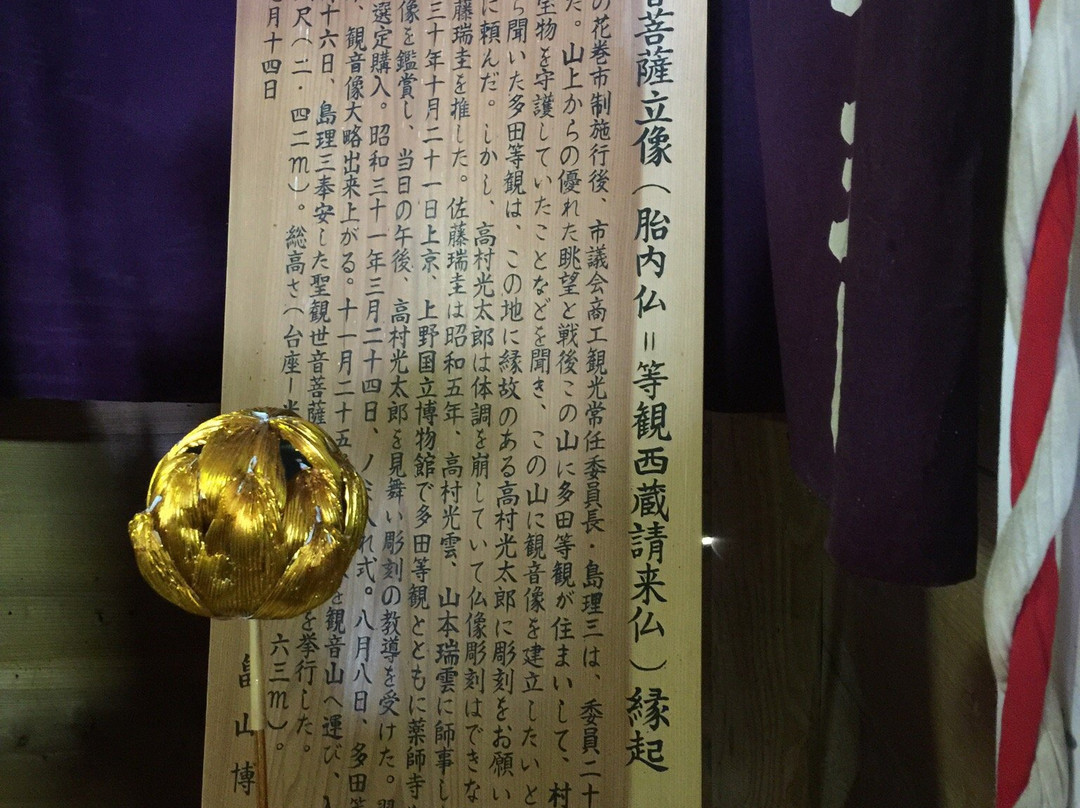 菩薩立像（胎内仏＝等観西蔵請来仏）縁起
の花巻市制施行後、市議会商工観光常任委員長・島理三は、委員二十
た。山上からの優れた眺望と戦後この山に多田等観が住まいして、村
宝物を守護していたことなどを聞き、この山に観音像を建立したいと
ら聞いた多田等観は、この地に縁故のある高村光太郎に彫刻をお願い
に頼んだ。しかし、高村光太郎は体調を崩していて仏像彫刻はできな
藤瑞圭を推した。佐藤瑞圭は昭和五年、高村光雲、山本瑞雲に師事し
三十年十月二十一日上京、上野国立博物館で多田等観とともに薬師寺
像を鑑賞し、当日の午後、高村光太郎を見舞い彫刻の教導を受けた。
選定購入。昭和三十一年三月二十四日、ノミ入れ式。八月八日、多田等
、観音像大略出来上がる。十一月二十五
を観音山へ運び、
十六日、島理三奉安した聖観世音菩薩
を挙行した。
尺（二・四二m）。総高さ（台座ー光
六三m）。
月十四日
畠山博